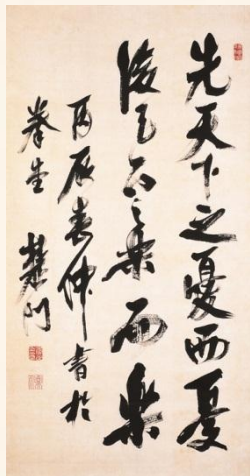 先天下之憂而憂
後天下之樂而樂
丙辰春仲書於
拳生 樊門